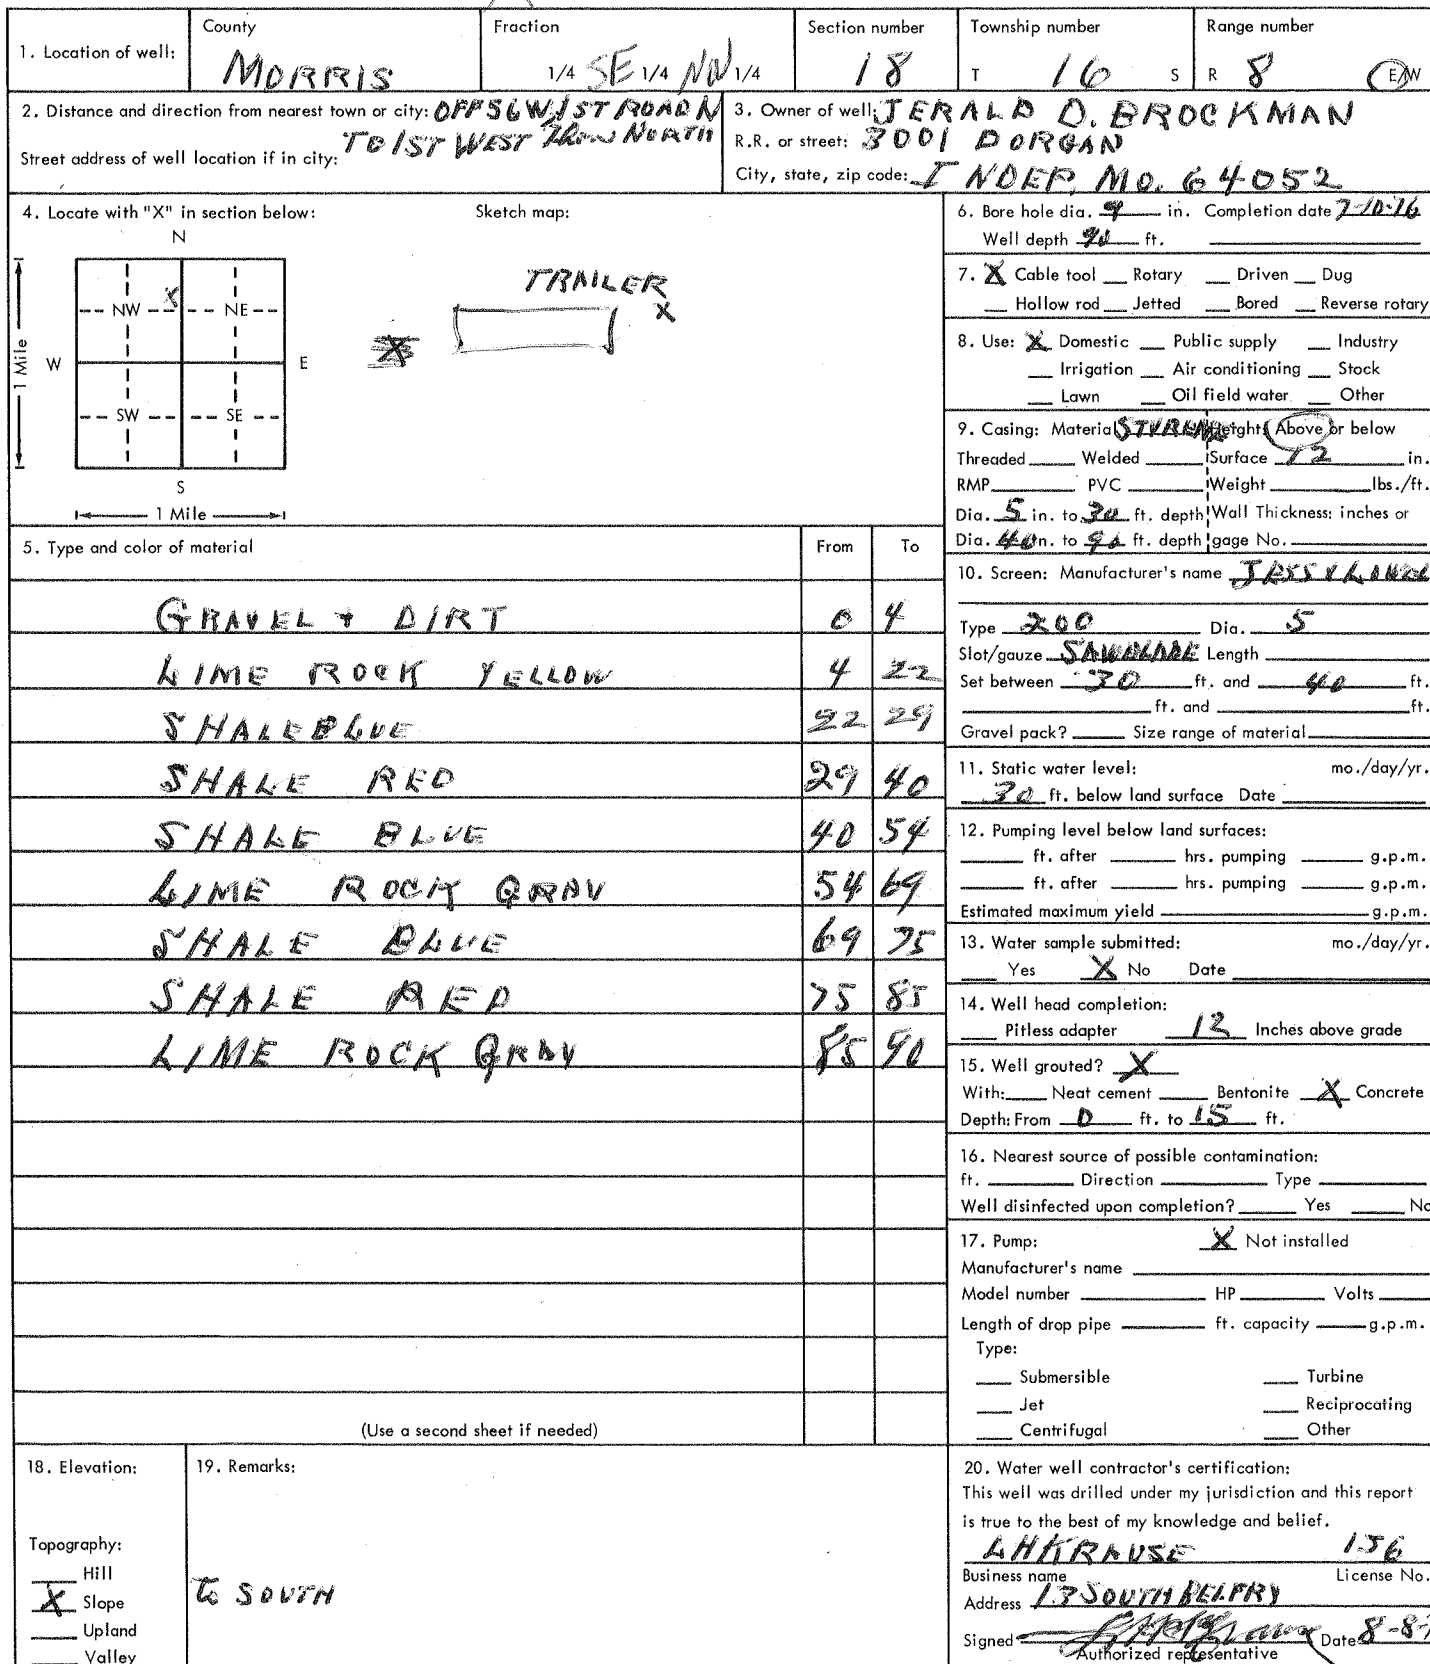 County Fraction Section number Township number Range number
1. Location of well: MORRIS 1/4 SE 1/4 NW 1/4 18 T 16 S R 8 E/W
2. Distance and direction from nearest town or city: OFF 56 W, 1ST ROAD N
TO 1ST WEST Then NORTH
Street address of well location if in city:
3. Owner of well: JERALD D. BROCKMAN
R.R. or street: 3001 DORGAN
City, state, zip code: INDEP, MO. 64052
4. Locate with "X" in section below: Sketch map:
N
NW X NE
W E
SW SE
S
1 Mile
1 Mile
TRAILER
X
5. Type and color of material From To
GRAVEL + DIRT 0 4
LIME ROCK YELLOW 4 22
SHALE BLUE 22 29
SHALE RED 29 40
SHALE BLUE 40 54
LIME ROCK GRAY 54 69
SHALE BLUE 69 75
SHALE RED 75 85
LIME ROCK GRAY 85 90
(Use a second sheet if needed)
6. Bore hole dia. 9 in. Completion date 7-10-76
Well depth 90 ft.
7. X Cable tool Rotary Driven Dug
Hollow rod Jetted Bored Reverse rotary
8. Use: X Domestic Public supply Industry
Irrigation Air conditioning Stock
Lawn Oil field water Other
9. Casing: Material Height: Above or below
Threaded Welded Surface 12 in.
RMP PVC Weight lbs./ft.
Dia. 5 in. to 30 ft. depth Wall Thickness: inches or
Dia. 40 in. to 90 ft. depth gage No.
10. Screen: Manufacturer's name
Type 200 Dia. 5
Slot/gauze SAWBLADE Length
Set between 30 ft. and 40 ft.
ft. and ft.
Gravel pack? Size range of material
11. Static water level: mo./day/yr.
30 ft. below land surface Date
12. Pumping level below land surfaces:
ft. after hrs. pumping g.p.m.
ft. after hrs. pumping g.p.m.
Estimated maximum yield g.p.m.
13. Water sample submitted: mo./day/yr.
Yes X No Date
14. Well head completion:
Pitless adapter 12 Inches above grade
15. Well grouted? X
With: Neat cement Bentonite X Concrete
Depth: From 0 ft. to 15 ft.
16. Nearest source of possible contamination:
ft. Direction Type
Well disinfected upon completion? Yes No
17. Pump: X Not installed
Manufacturer's name
Model number HP Volts
Length of drop pipe ft. capacity g.p.m.
Type:
Submersible Turbine
Jet Reciprocating
Centrifugal Other
18. Elevation:
Topography:
Hill
X Slope
Upland
Valley
19. Remarks:
to SOUTH
20. Water well contractor's certification:
This well was drilled under my jurisdiction and this report
is true to the best of my knowledge and belief.
LHKRAUSE 156
Business name License No.
Address 13 SOUTH BELFRY
Signed Date 8-8-7
Authorized representative